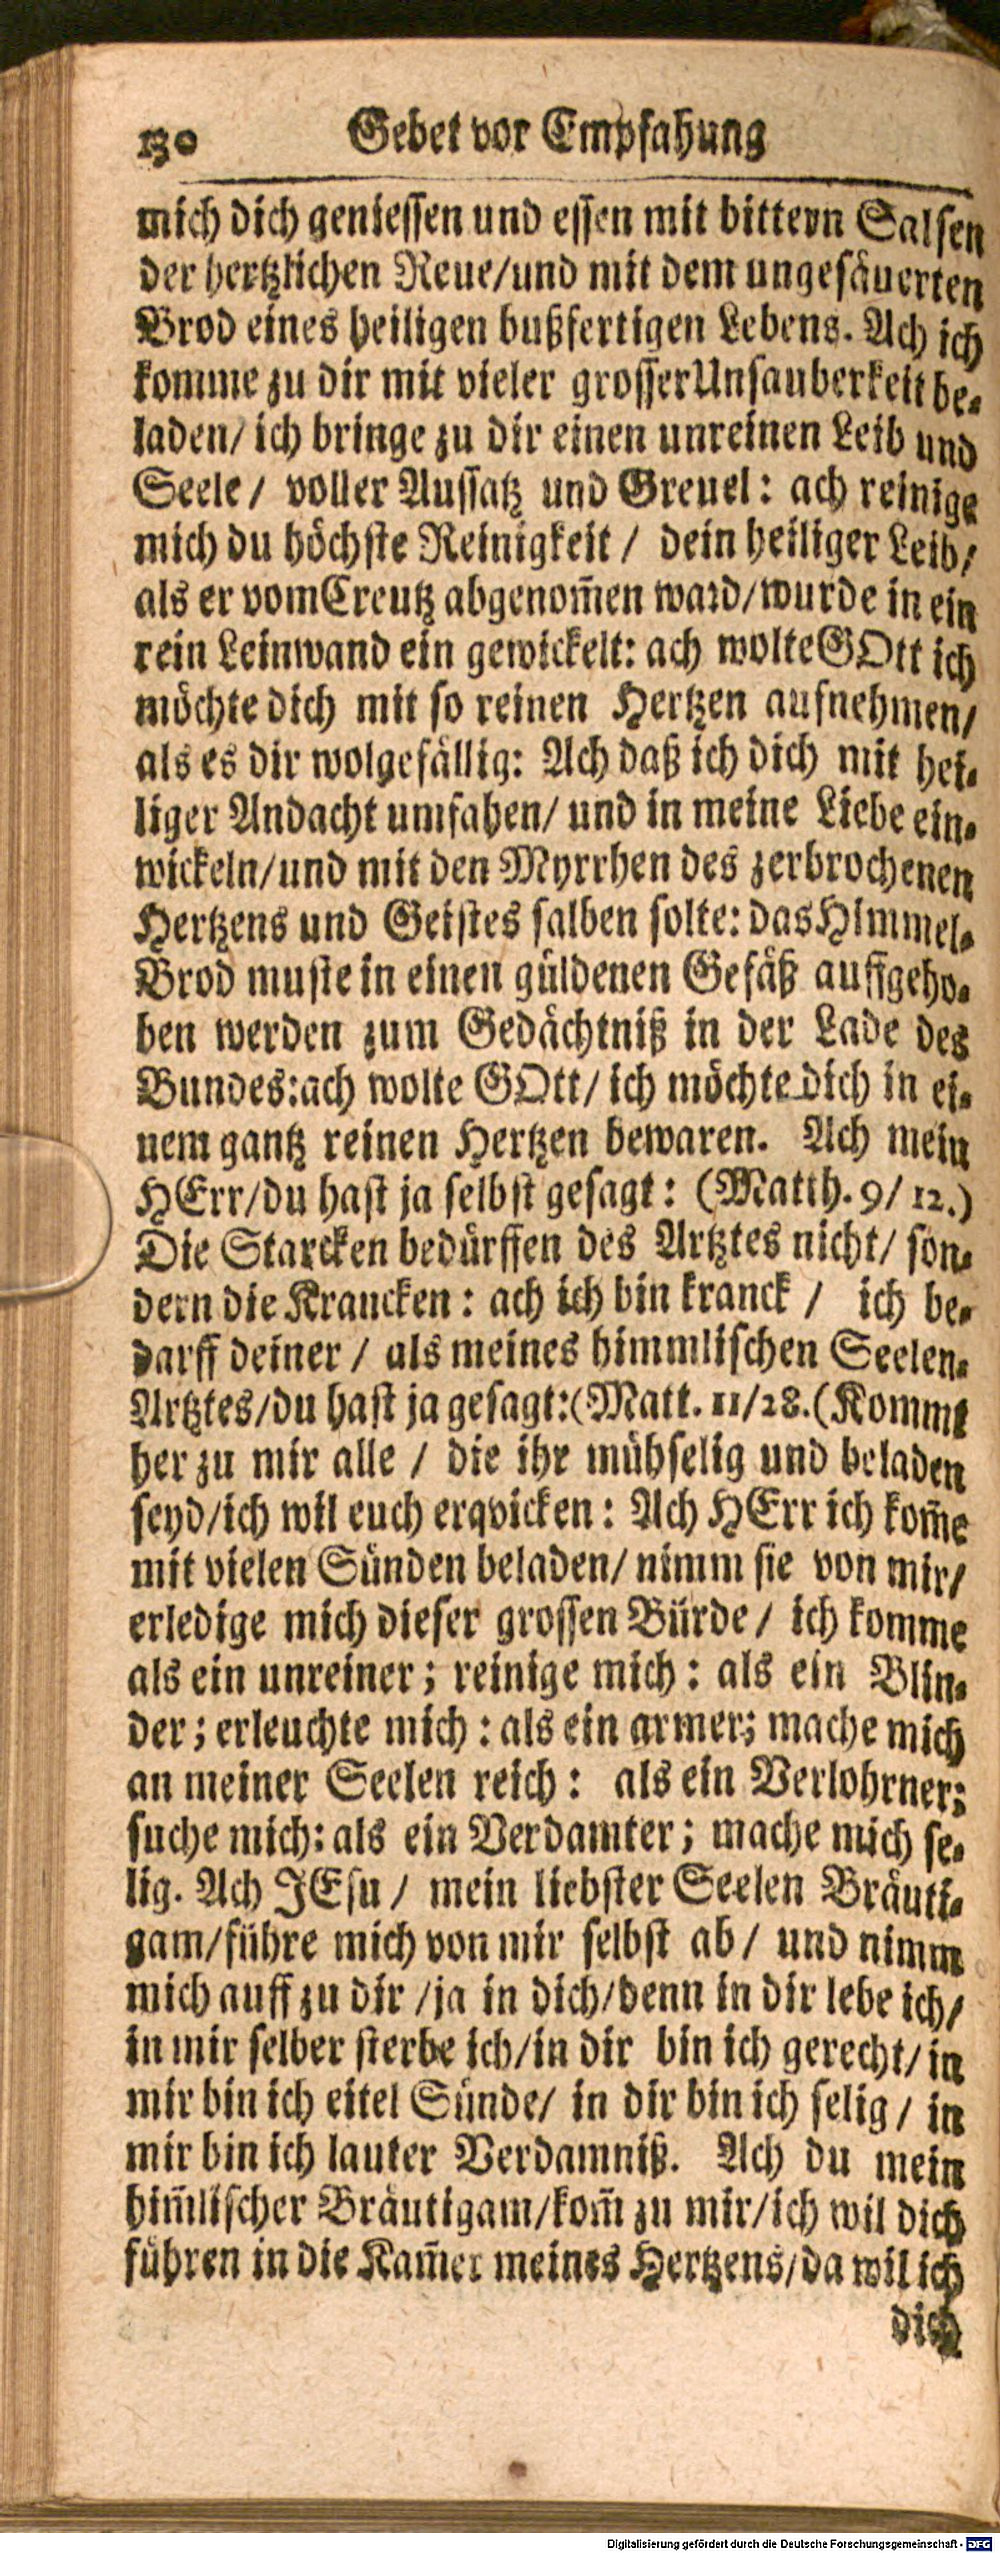 130 Gebet vor Empfahung
mich dich geniessen und essen mit bittern Salsen
der hertzlichen Reue/und mit dem ungesäuerten
Brod eines heiligen bußfertigen Lebens. Ach ich
komme zu dir mit vieler grosser Unsauberkeit be-
laden/ ich bringe zu dir einen unreinen Leib und
Seele/ voller Aussatz und Greuel: ach reinige
mich du höchste Reinigkeit / dein heiliger Leib/
als er vom Creutz abgenom̃en ward/wurde in ein
rein Leinwand ein gewickelt: ach wolte GOtt ich
möchte dich mit so reinen Hertzen aufnehmen/
als es dir wolgefällig: Ach daß ich dich mit hei-
liger Andacht umfahen/ und in meine Liebe ein-
wickeln/und mit den Myrrhen des zerbrochenen
Hertzens und Geistes salben solte: das HImmel-
Brod muste in einen güldenen Gefäß auffgeho-
ben werden zum Gedächtniß in der Lade des
Bundes:ach wolte GOtt/ ich möchte dich in ei-
nem gantz reinen Hertzen bewaren. Ach mein
HErr/du hast ja selbst gesagt: (Matth. 9/ 12.)
Die Starcken bedürffen des Artztes nicht/ son-
dern die Krancken: ach ich bin kranck / ich be-
darff deiner / als meines himmlischen Seelen-
Artztes/du hast ja gesagt:(Matt. 11/28.(Kommt
her zu mir alle / die ihr mühselig und beladen
seyd/ich wil euch erqvicken: Ach HErr ich kom̃e
mit vielen Sünden beladen/ nimm sie von mir/
erledige mich dieser grossen Bürde/ ich komme
als ein unreiner; reinige mich: als ein Blin-
der; erleuchte mich: als ein armer; mache mich
an meiner Seelen reich: als ein Verlohrner;
suche mich: als ein Verdamter; mache mich se-
lig. Ach JEsu/ mein liebster Seelen Bräuti-
gam/führe mich von mir selbst ab/ und nimm
mich auff zu dir /ja in dich/denn in dir lebe ich/
in mir selber sterbe ich/in dir bin ich gerecht/in
mir bin ich eitel Sünde/ in dir bin ich selig / in
mir bin ich lauter Verdamniß. Ach du mein
him̃lischer Bräutigam/kom̃ zu mir/ich wil dich
führen in die Kam̃er meines Hertzens/da wil ich
dich
Digitalisierung gefördert durch die Deutsche Forschungsgemeinschaft - DFG